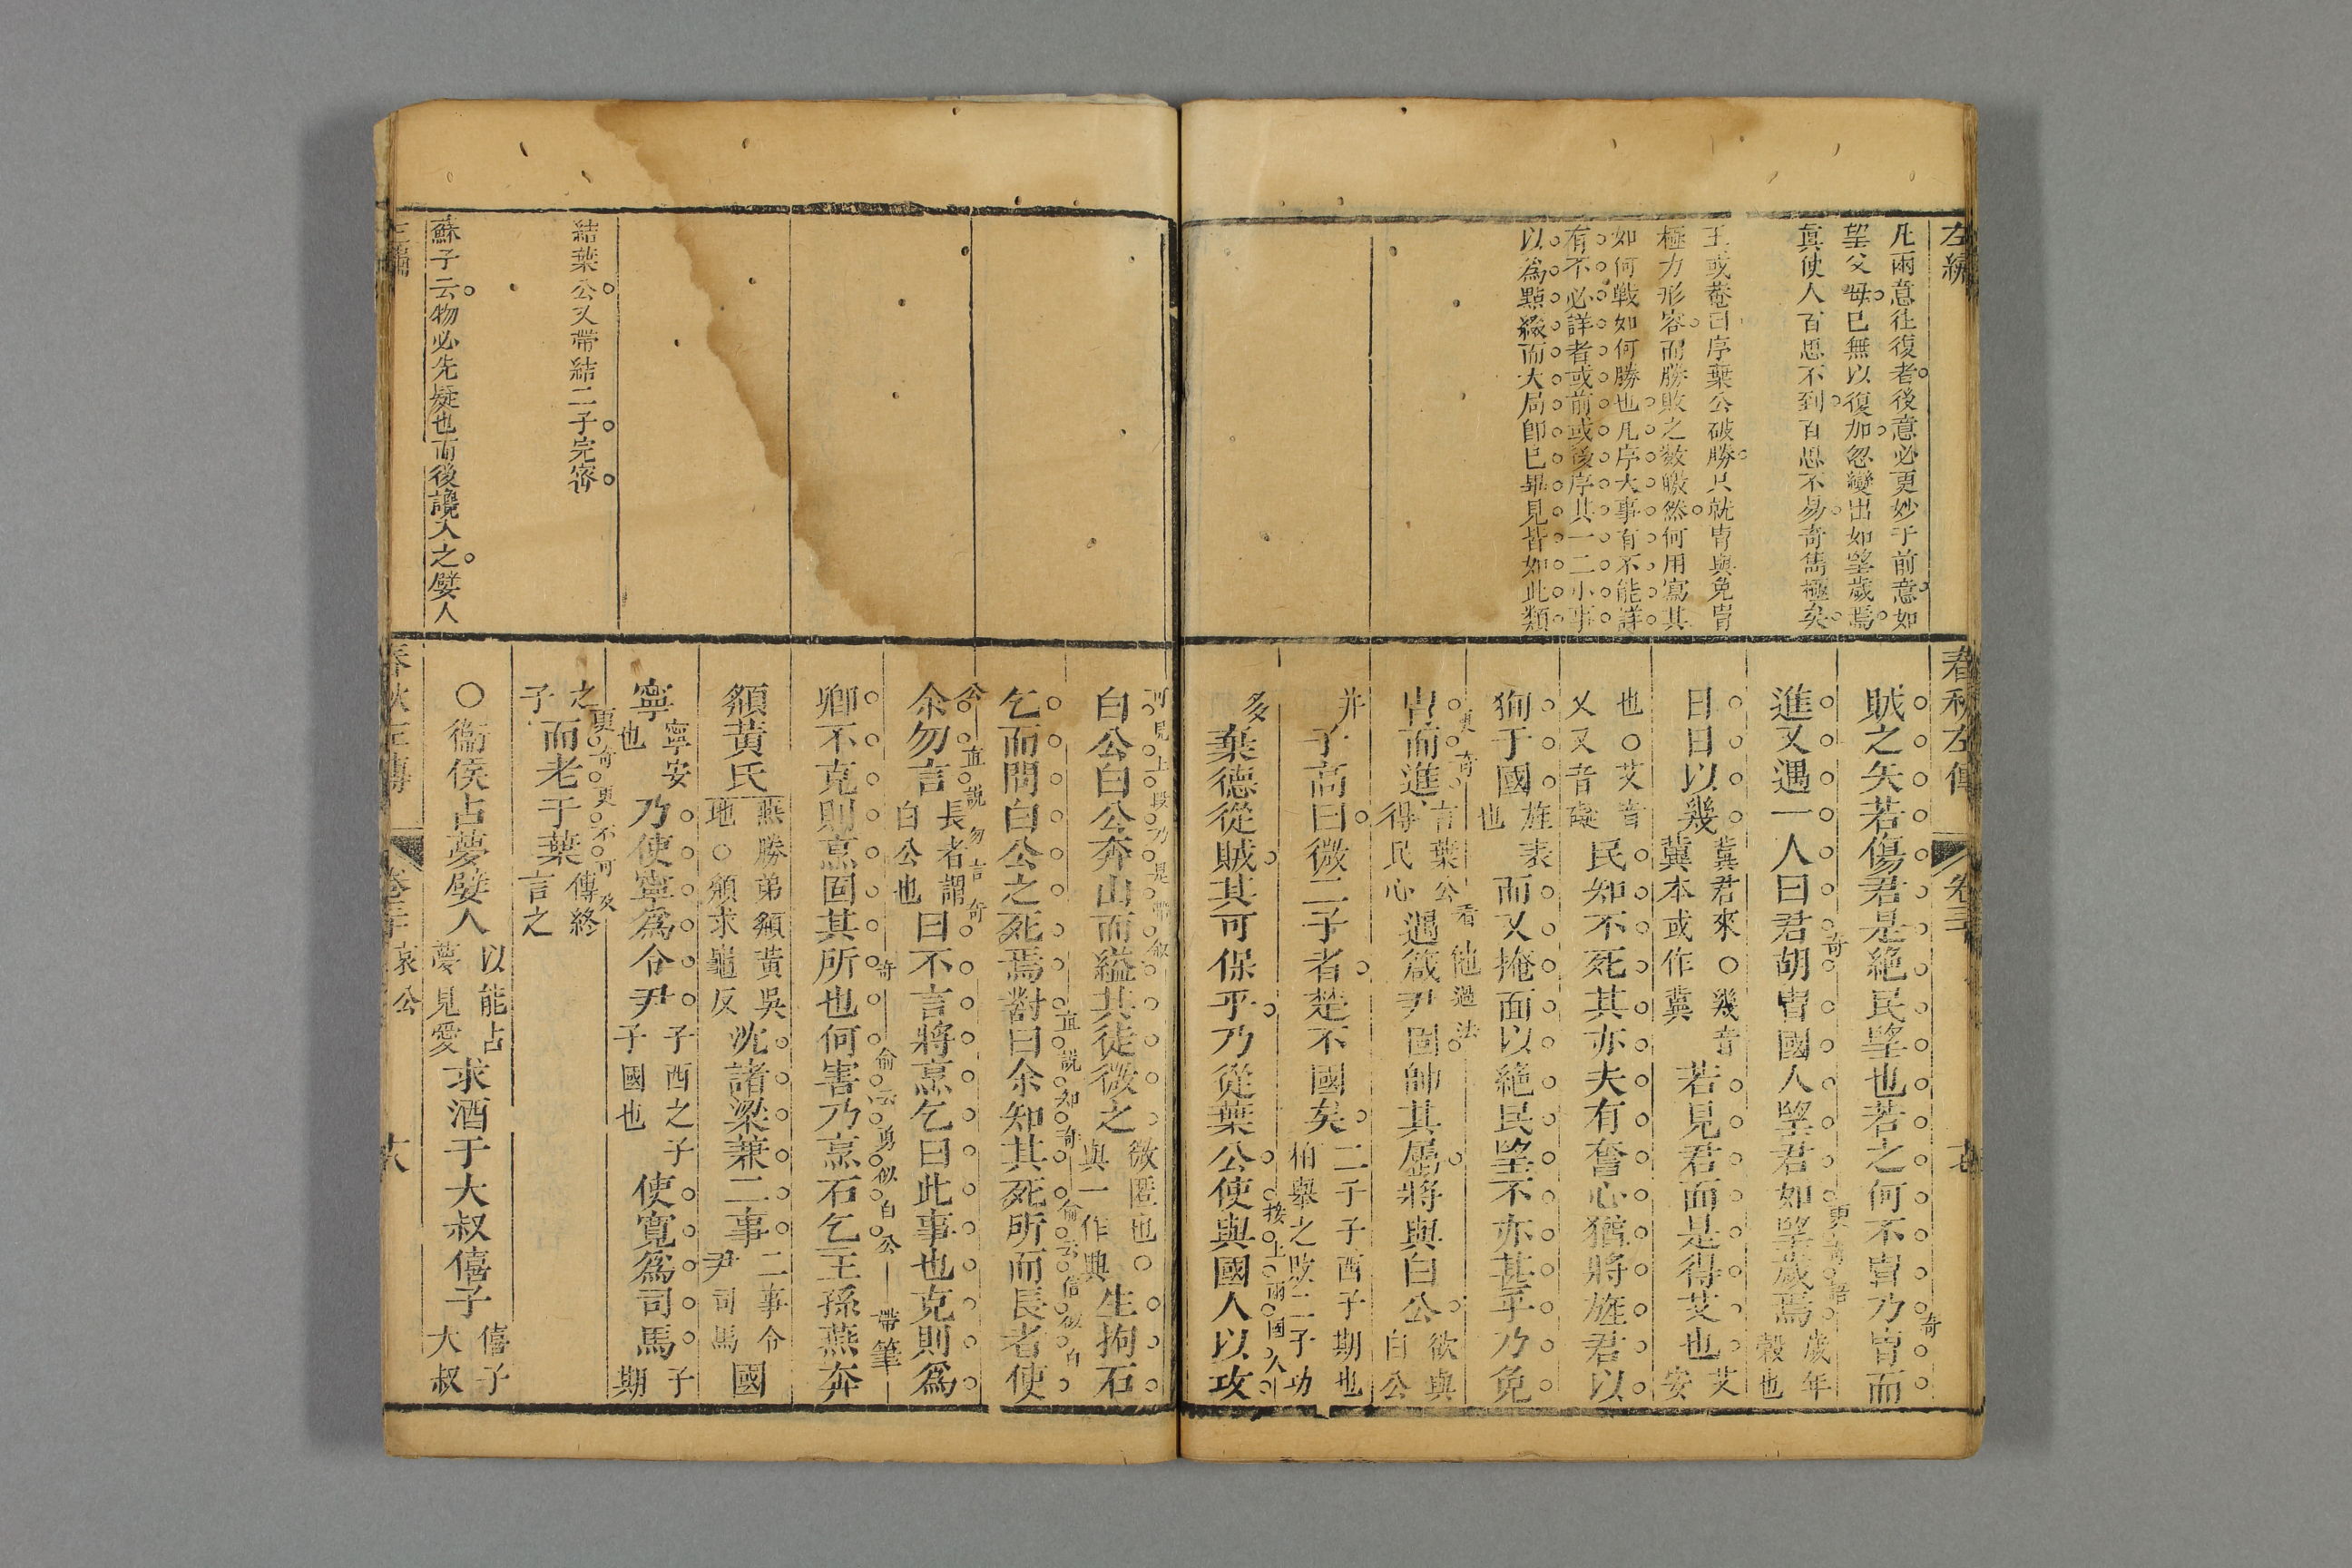 左繡
凡兩意往復者後意必更妙于前意如
望父母已無以復加忽變出如望歲焉
真使人百思不到百思不易奇雋極矣
王或菴曰序葉公破勝只就冑與免冑
極力形容而勝敗之數皦然何用寫其
如何戰如何勝也凡序大事有不能詳
有不必詳者或前或後序其一二小事
以為點綴而大局即已畢見皆如此類
春秋左傳 卷三 七
賊之矢若傷君是絶民望也若之何不冑乃冑而
奇
進又遇一人曰君胡冑國人望君如望歲焉歲年穀也
奇 更奇語
日日以幾冀君來○幾音冀本或作冀若見君面是得艾也艾安
也○艾音乂又音礙民知不死其亦夫有奮心猶將旌君以
狥于國旌表也而又掩面以絶民望不亦甚乎乃免
冑而進言葉公得民心遇箴尹固帥其屬將與白公欲與白公
更奇 看他過法
并子高曰微二子者楚不國矣二子子西子期也伯舉之敗二子功
多棄德從賊其可保乎乃從葉公使與國人以攻
接上兩國人
白公白公奔山而縊其徒微之微匿也○與一作典生拘石
可見上段乃是帶敘
乞而問白公之死焉對曰余知其死所而長者使
直説知奇 偷云信似白公
余勿言長者謂白公也曰不言將烹乞曰此事也克則爲
直說勿言奇
卿不克則烹固其所也何害乃烹石乞王孫燕奔
奇 偷云勇似白公 帶筆
頯黄氏燕勝弟頯黄吳地○頯求龜反沈諸梁兼二事二事令尹司馬國
寧寧安也乃使寧爲令尹子西之子子國也使寬爲司馬子期
之子而老于葉傳終言之
更奇更不可及
○衞侯占夢嬖人以能占夢見愛求酒于大叔僖子僖子大叔
結葉公又帶結二子完密
蘇子云物必先疑也而後讒入之嬖人
春秋左傳 哀公